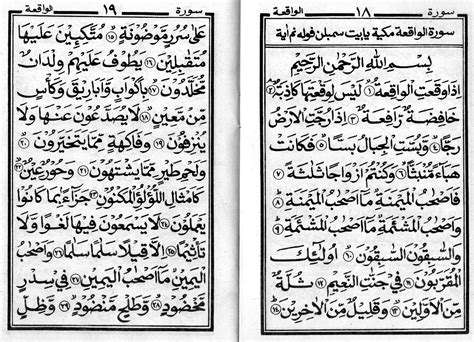 سورة ١٨ الواقعة
سورة الواقعة مكية يايت سمبلن فوله نم اية
بِسْمِ اللهِ الرَّحْمٰنِ الرَّحِيْمِ
اِذَا وَقَعَتِ الْوَاقِعَةُ ۝١ لَيْسَ لِوَقْعَتِهَا كَاذِبَةٌ ۝٢
خَافِضَةٌ رَّافِعَةٌ ۝٣ اِذَا رُجَّتِ الْاَرْضُ
رَجًّا ۝٤ وَّبُسَّتِ الْجِبَالُ بَسًّا ۝٥ فَكَانَتْ
هَبَآءً مُّنْبَثًّا ۝٦ وَّكُنْتُمْ اَزْوَاجًا ثَلٰثَةً ۝٧
فَاَصْحٰبُ الْمَيْمَنَةِ مَآ اَصْحٰبُ الْمَيْمَنَةِ ۝٨
وَاَصْحٰبُ الْمَشْئَمَةِ مَآ اَصْحٰبُ الْمَشْئَمَةِ ۝٩
وَالسّٰبِقُوْنَ السّٰبِقُوْنَ ۝١٠ اُولٰٓئِكَ
الْمُقَرَّبُوْنَ ۝١١ فِيْ جَنّٰتِ النَّعِيْمِ ۝١٢ ثُلَّةٌ
مِّنَ الْاَوَّلِيْنَ ۝١٣ وَقَلِيْلٌ مِّنَ الْاٰخِرِيْنَ ۝١٤
سورة ١٩ الواقعة
عَلٰى سُرُرٍ مَّوْضُوْنَةٍ ۝١٥ مُّتَّكِئِيْنَ عَلَيْهَا
مُتَقٰبِلِيْنَ ۝١٦ يَطُوْفُ عَلَيْهِمْ وِلْدَانٌ
مُّخَلَّدُوْنَ ۝١٧ بِاَكْوَابٍ وَّاَبَارِيْقَ وَكَاْسٍ
مِّنْ مَّعِيْنٍ ۝١٨ لَّا يُصَدَّعُوْنَ عَنْهَا وَلَا
يُنْزِفُوْنَ ۝١٩ وَفَاكِهَةٍ مِّمَّا يَتَخَيَّرُوْنَ ۝٢٠
وَلَحْمِ طَيْرٍ مِّمَّا يَشْتَهُوْنَ ۝٢١ وَحُوْرٌ عِيْنٌ ۝٢٢
كَاَمْثَالِ اللُّؤْلُؤِ الْمَكْنُوْنِ ۝٢٣ جَزَآءً بِمَا كَانُوْا
يَعْمَلُوْنَ ۝٢٤ لَا يَسْمَعُوْنَ فِيْهَا لَغْوًا وَّلَا
تَاْثِيْمًا ۝٢٥ اِلَّا قِيْلًا سَلٰمًا سَلٰمًا ۝٢٦ وَاَصْحٰبُ
الْيَمِيْنِ مَآ اَصْحٰبُ الْيَمِيْنِ ۝٢٧ فِيْ سِدْرٍ
مَّخْضُوْدٍ ۝٢٨ وَّطَلْحٍ مَّنْضُوْدٍ ۝٢٩ وَّظِلٍّ